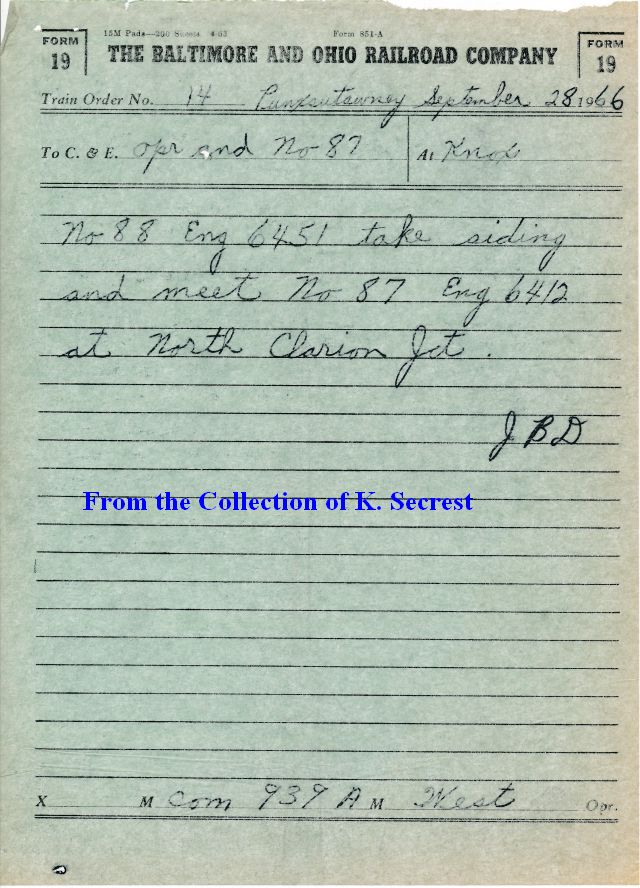 15M Pads—250 Sheets 4-63 Form 851-A
FORM 19 THE BALTIMORE AND OHIO RAILROAD COMPANY FORM 19
Train Order No. 14 Punxsutawney September 28 1966
To C. & E. opr and No 87 At Knox
No 88 Eng 6451 take siding
and meet No 87 Eng 6412
at North Clarion Jct.
J B D
From the Collection of K. Secrest
X M Com 939 A M West Opr.